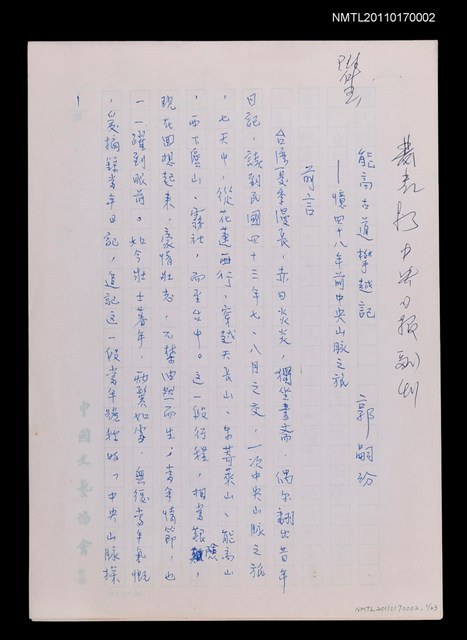 NMTL20110170002
發表於中央日報副刊
能高古道攀越記
——憶四十八年前中央山脈之旅
郭嗣汾
前言
台灣夏季漫長,赤日炎炎,擱坐書齋,偶尔翻出昔年
日記,談到民國四十三年七、八月之交,一次中央山脈之旅
,七天中,從花蓮西行,穿越天長山、奇萊山、能高山
,西下廬山、霧社,而至台中。這一段行程,相當艱險,
現在回想起來,豪情壯志,不禁油然而生,當年情節,也
一一躍到眼前。如今壯士暮年,兩鬢如霜,無復當年氣慨
,爰摘錄當年日記,追記這一段當年跨越時「中央山脈探
1
中國文藝協會
NMTL20110170002, 1/63